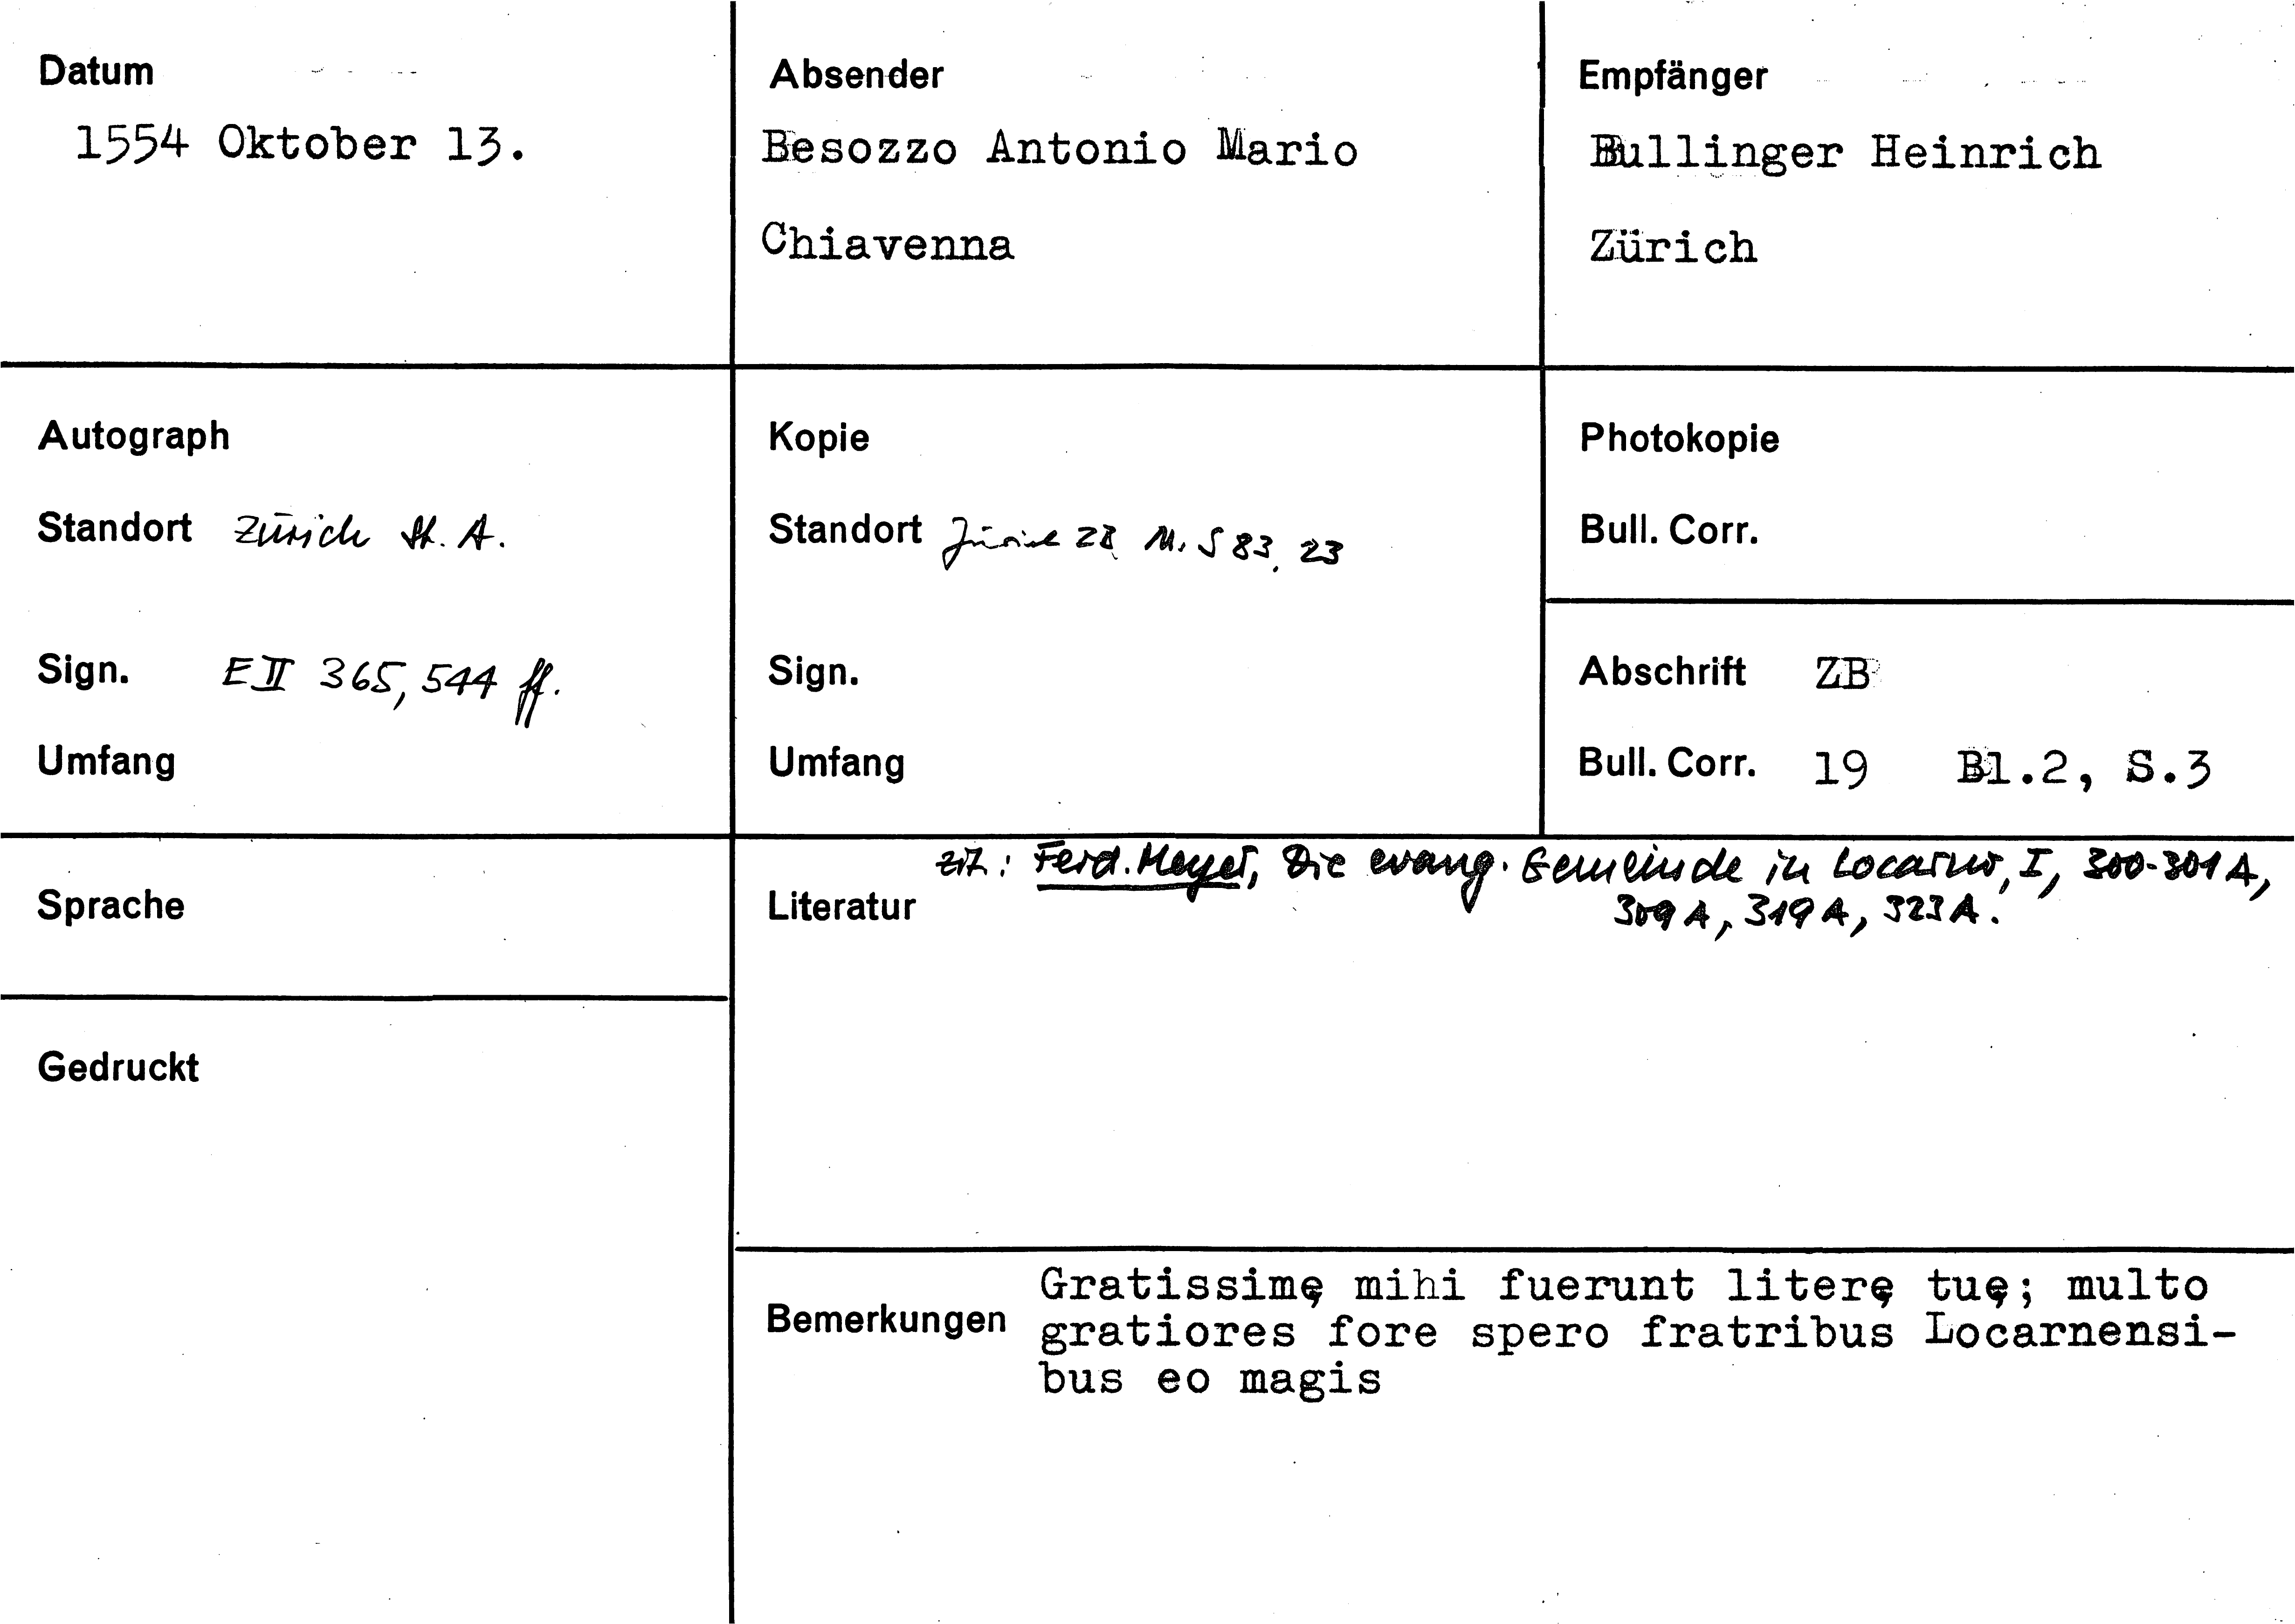 Datum
1554 Oktober 13.
Absender
Besozzo Antonio Mario
Chiavenna
Empfänger
Bullinger Heinrich
Zürich
Autograph
Standort Zürich St. A.
Sign. E II 365, 544 ff.
Umfang
Kopie
Standort Zürich ZB Ms S 83, 23
Sign.
Umfang
Photokopie
Bull. Corr.
Abschrift ZB
Bull. Corr. 19 Bl.2, S.3
Sprache
Gedruckt
zit: Ferd. Meyer, Die evang. Gemeinde in Locarno, I, 300-301 A,
Literatur 309 A, 319 A, 323 A.
Gratissimę mihi fuerunt literę tuę; multo
Bemerkungen gratiores fore spero fratribus Locarnensi-
bus eo magis